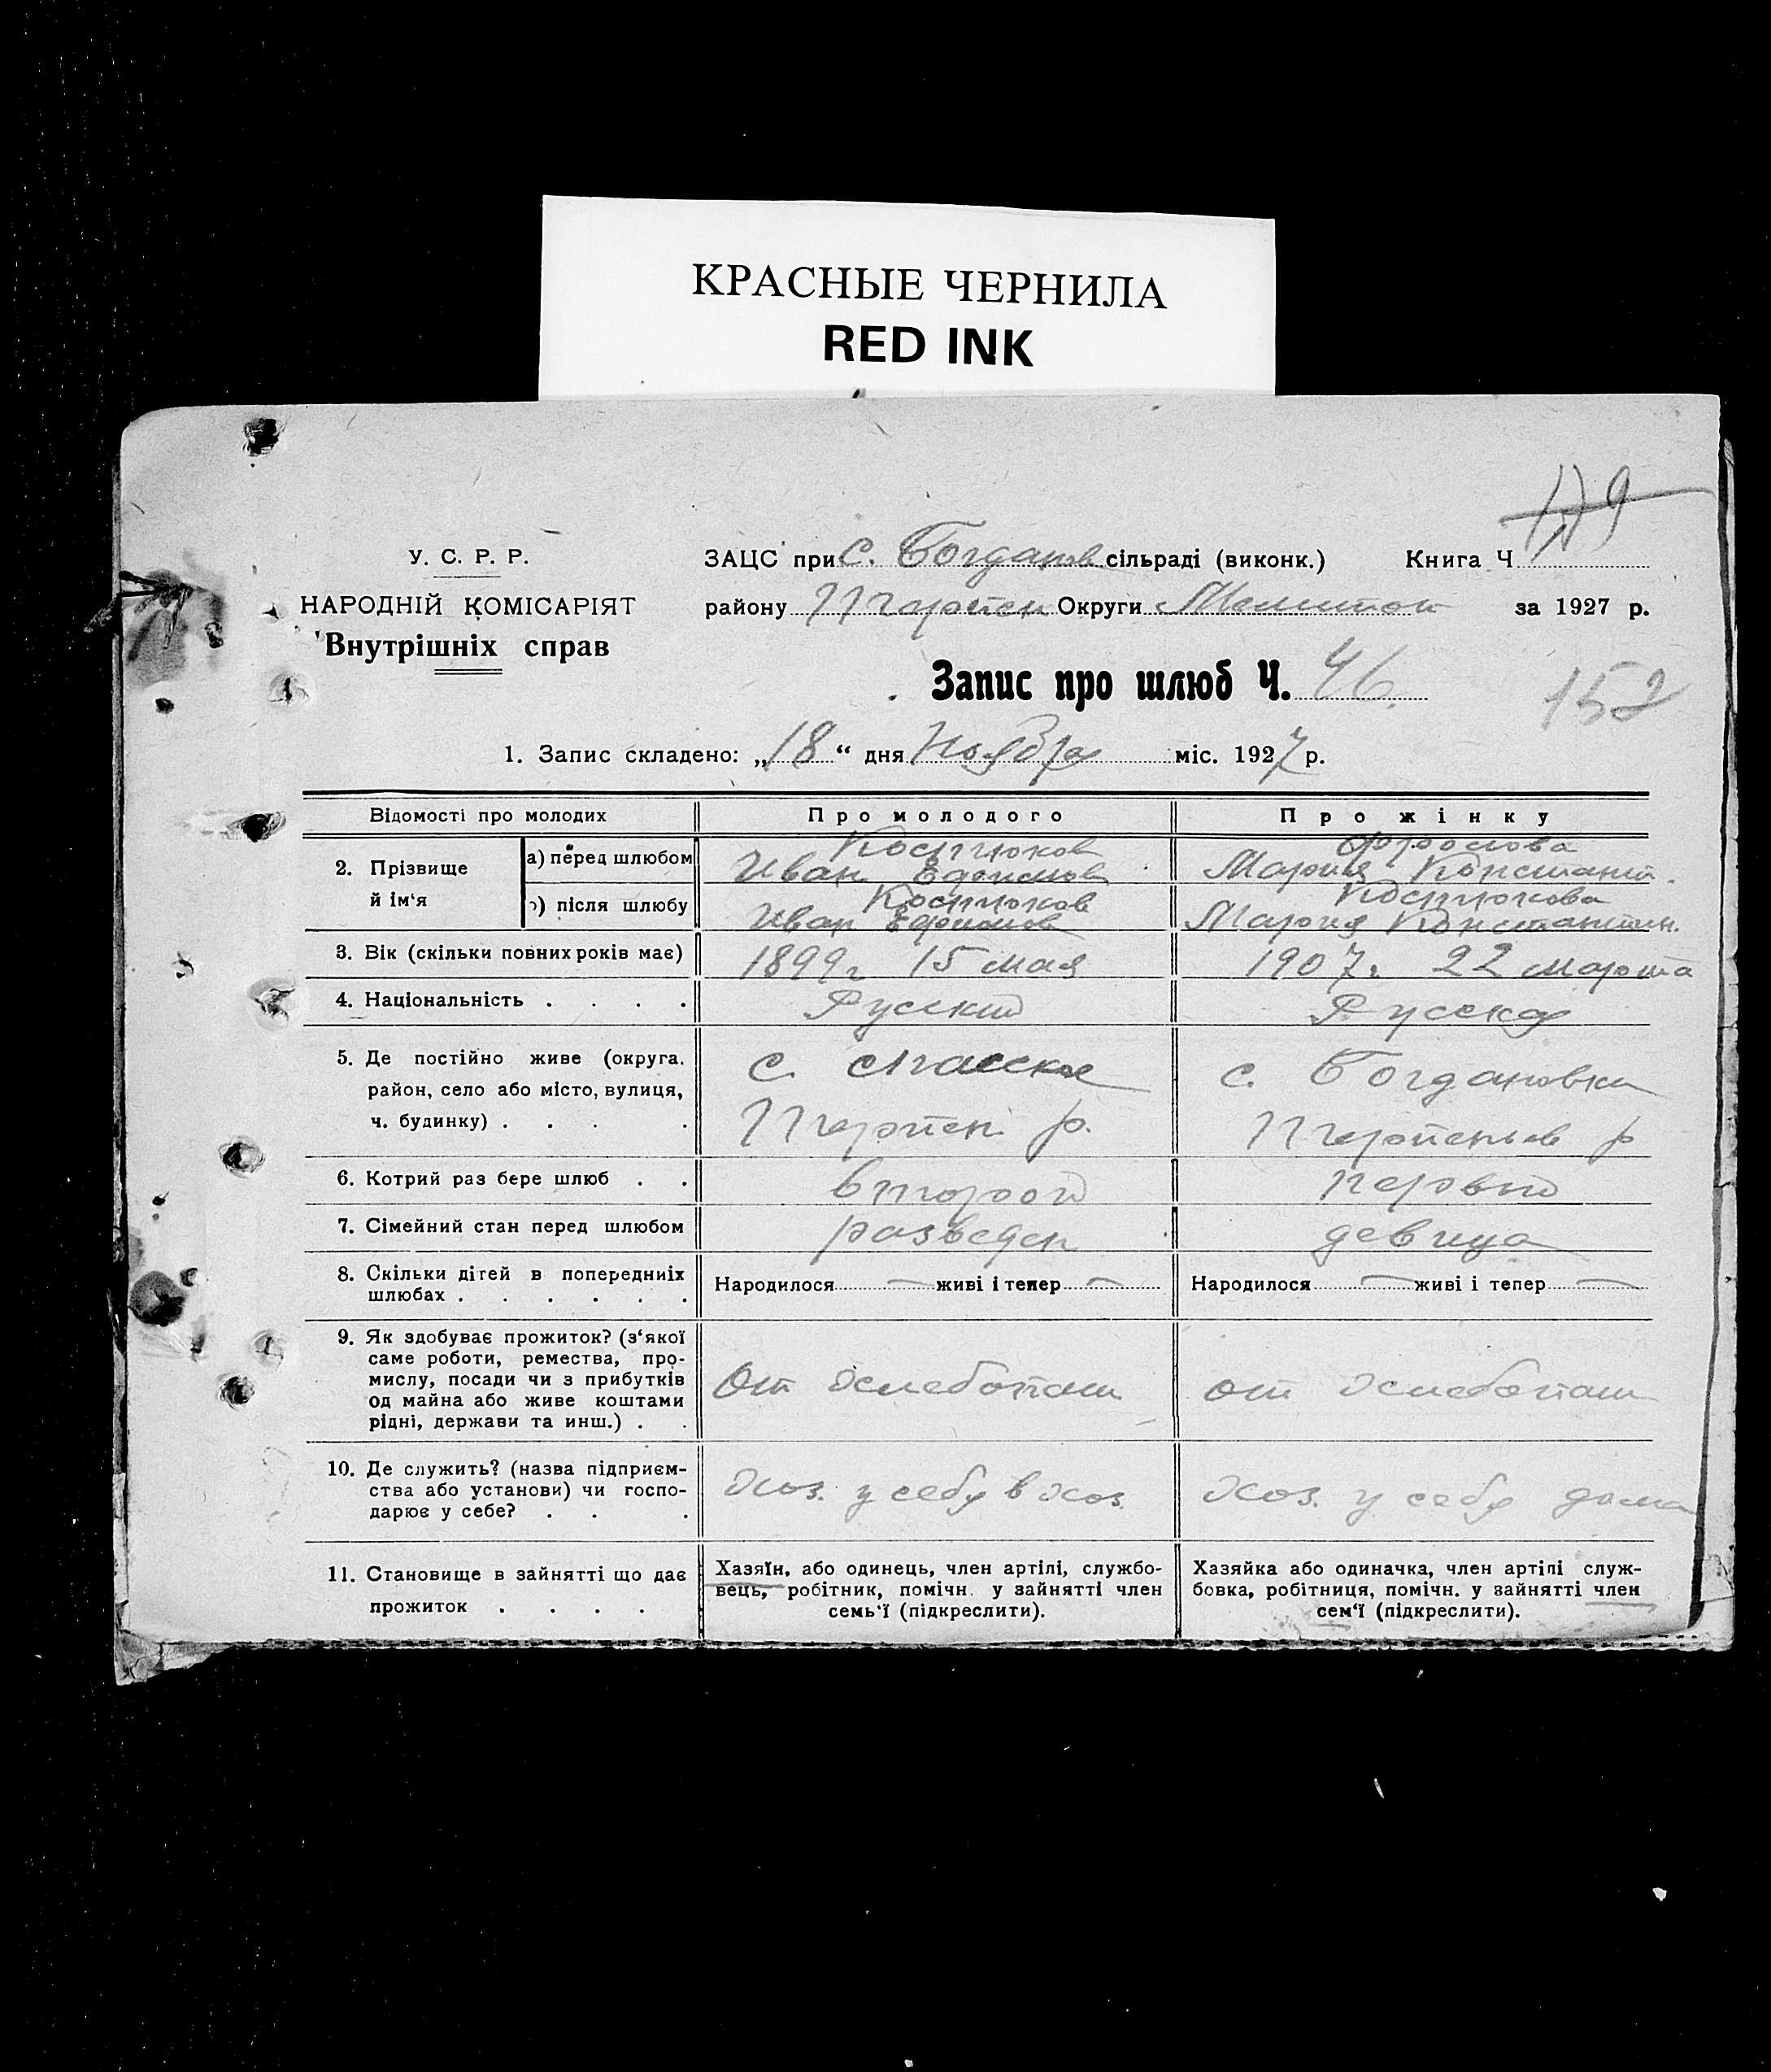 КРАСНЫЕ ЧЕРНИЛА
RED INK
У. С. Р. Р.
НАРОДНІЙ КОМІСАРІЯТ
Внутрішніх справ
ЗАЦС при с. Богданов сільраді (виконк.) Книга Ч
району Округи Мелитоп за 1927 р.
Запис про шлюб Ч. 46.
152
1. Запис складено: „18“ дня Ноября міс. 1927 р.
Відомості про молодих
Про молодого
Про жінку
2. Прізвище й ім‘я
а) перед шлюбом
Костюков
Иван Ефимов
Фролова
Мария Констант.
б) після шлюбу
Костюков
Иван Ефимов
Костюкова
Мария Константин.
3. Вік (скільки повних років має)
1899 г. 15 мая
1907 г. 22 марта
4. Національність . . . .
Руский
Русска
5. Де постійно живе (округа.
район, село або місто, вулиця,
ч. будинку) . . . .
с.
р.
с. Богдановка
р
6. Котрий раз бере шлюб . .
второй
первый
7. Сімейний стан перед шлюбом
разведен
девица
8. Скільки дітей в попередниіх
шлюбах . . . . . .
Народилося — живі і тепер —
Народилося — живі і тепер —
9. Як здобуває прожиток? (з‘якої
саме роботи, ремества, про-
мислу, посади чи з прибутків
од майна або живе коштами
рідні, держави та инш.) . .
От хлебопаш
от хлебопаш
10. Де служить? (назва підприєм-
ства або установи) чи госпо-
дарює у себе? . . .
хоз. у себя в хоз.
хоз. у себя дома
11. Становище в зайнятті що дає
прожиток . . . .
Хазяїн, або одинець, член артілі, службо-
вець, робітник, помічн. у зайнятті член
семь‘ї (підкреслити).
Хазяйка або одиначка, член артілі служ-
бовка, робітниця, помічн. у зайнятті член
сем‘ї (підкреслити).